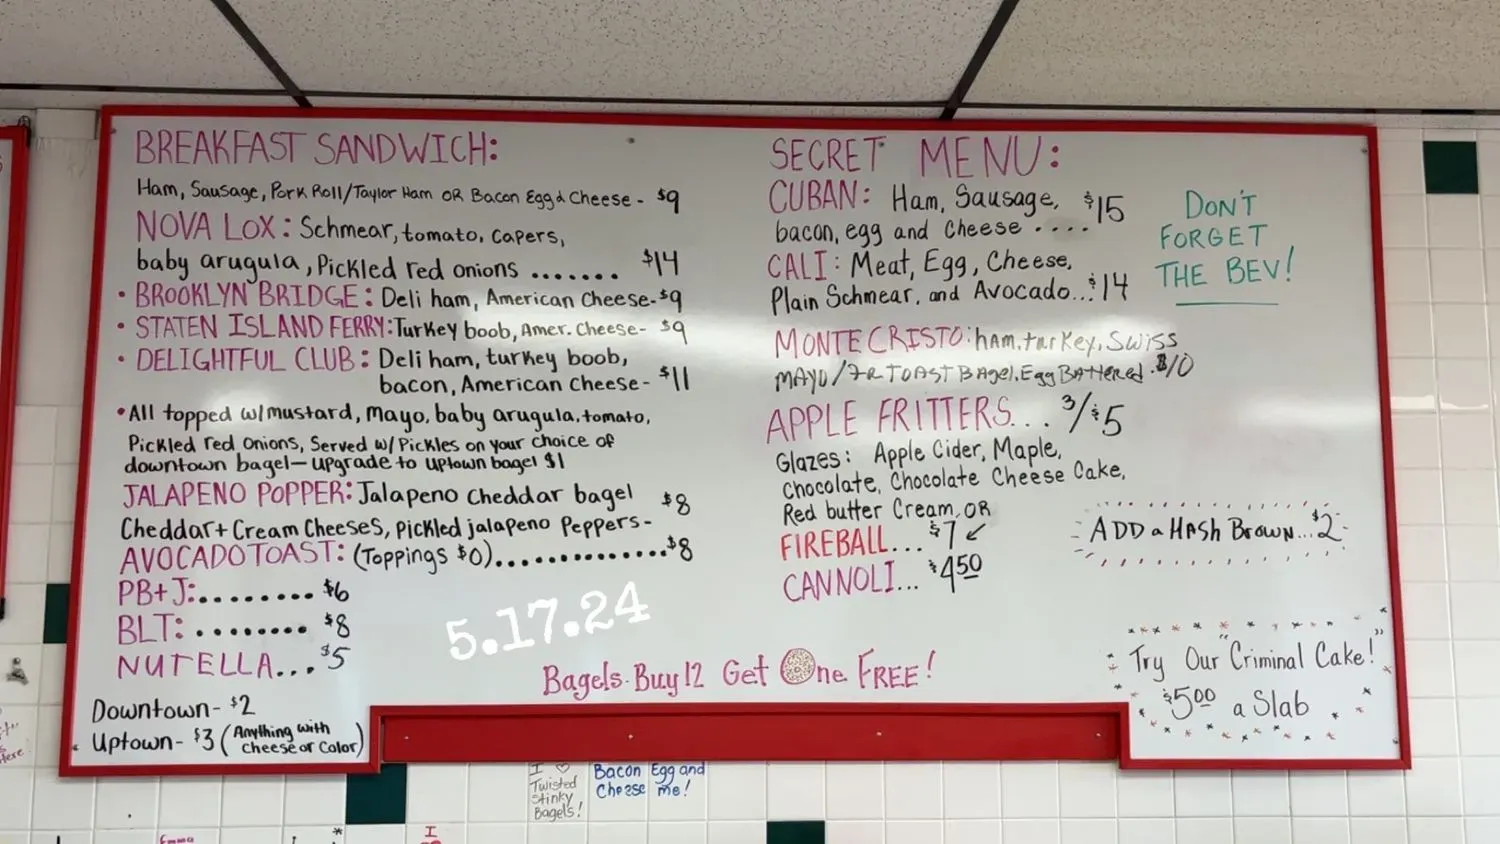 BREAKFAST SANDWICH:
Ham, Sausage, Pork Roll/Taylor Ham OR Bacon Egg & Cheese - $9
NOVA LOX: Schmear, tomato, capers,
baby arugula, Pickled red onions ....... $14
• BROOKLYN BRIDGE: Deli ham, American Cheese- $9
• STATEN ISLAND FERRY: Turkey boob, Amer. Cheese- $9
• DELIGHTFUL CLUB: Deli ham, turkey boob,
bacon, American Cheese- $11
• All topped w/mustard, Mayo, baby arugula, tomato,
Pickled red onions, Served w/ Pickles on your choice of
downtown bagel— upgrade to uptown bagel $1
JALAPENO POPPER: Jalapeno cheddar bagel
Cheddar + Cream Cheeses, pickled jalapeno Peppers- $8
AVOCADO TOAST: (Toppings $0)............. $8
PB+J:........ $6
BLT:........ $8
NUTELLA... $5
Downtown- $2
Uptown- $3 (Anything with
cheese or color)
SECRET MENU:
CUBAN: Ham, Sausage, $15
bacon, egg and cheese ....
CALI: Meat, Egg, Cheese,
Plain Schmear, and Avocado... $14
MONTE CRISTO: ham, turkey, Swiss
MAYO/FR TOAST Bagel, Egg BATTered. $10
APPLE FRITTERS... 3/$5
Glazes: Apple Cider, Maple,
Chocolate, Chocolate Cheese Cake,
Red butter Cream, OR
FIREBALL... $7
CANNOLI... $4.50
DON'T
FORGET
THE BEV!
ADD a HASH BROWN... $2
Try Our "Criminal Cake!"
$5.00 a Slab
5.17.24
Bagels. Buy 12 Get One FREE!
I ♡
Twisted
Stinky
Bagels!
Bacon Egg and
Cheese me!
Emma
I